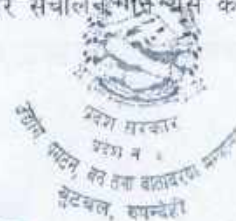 र संचालन
प्रदेश सरकार
प्रदेश नं ५
उद्योग, पर्यटन, वन तथा वातावरण मन्त्रालय
बुटवल, रुपन्देही